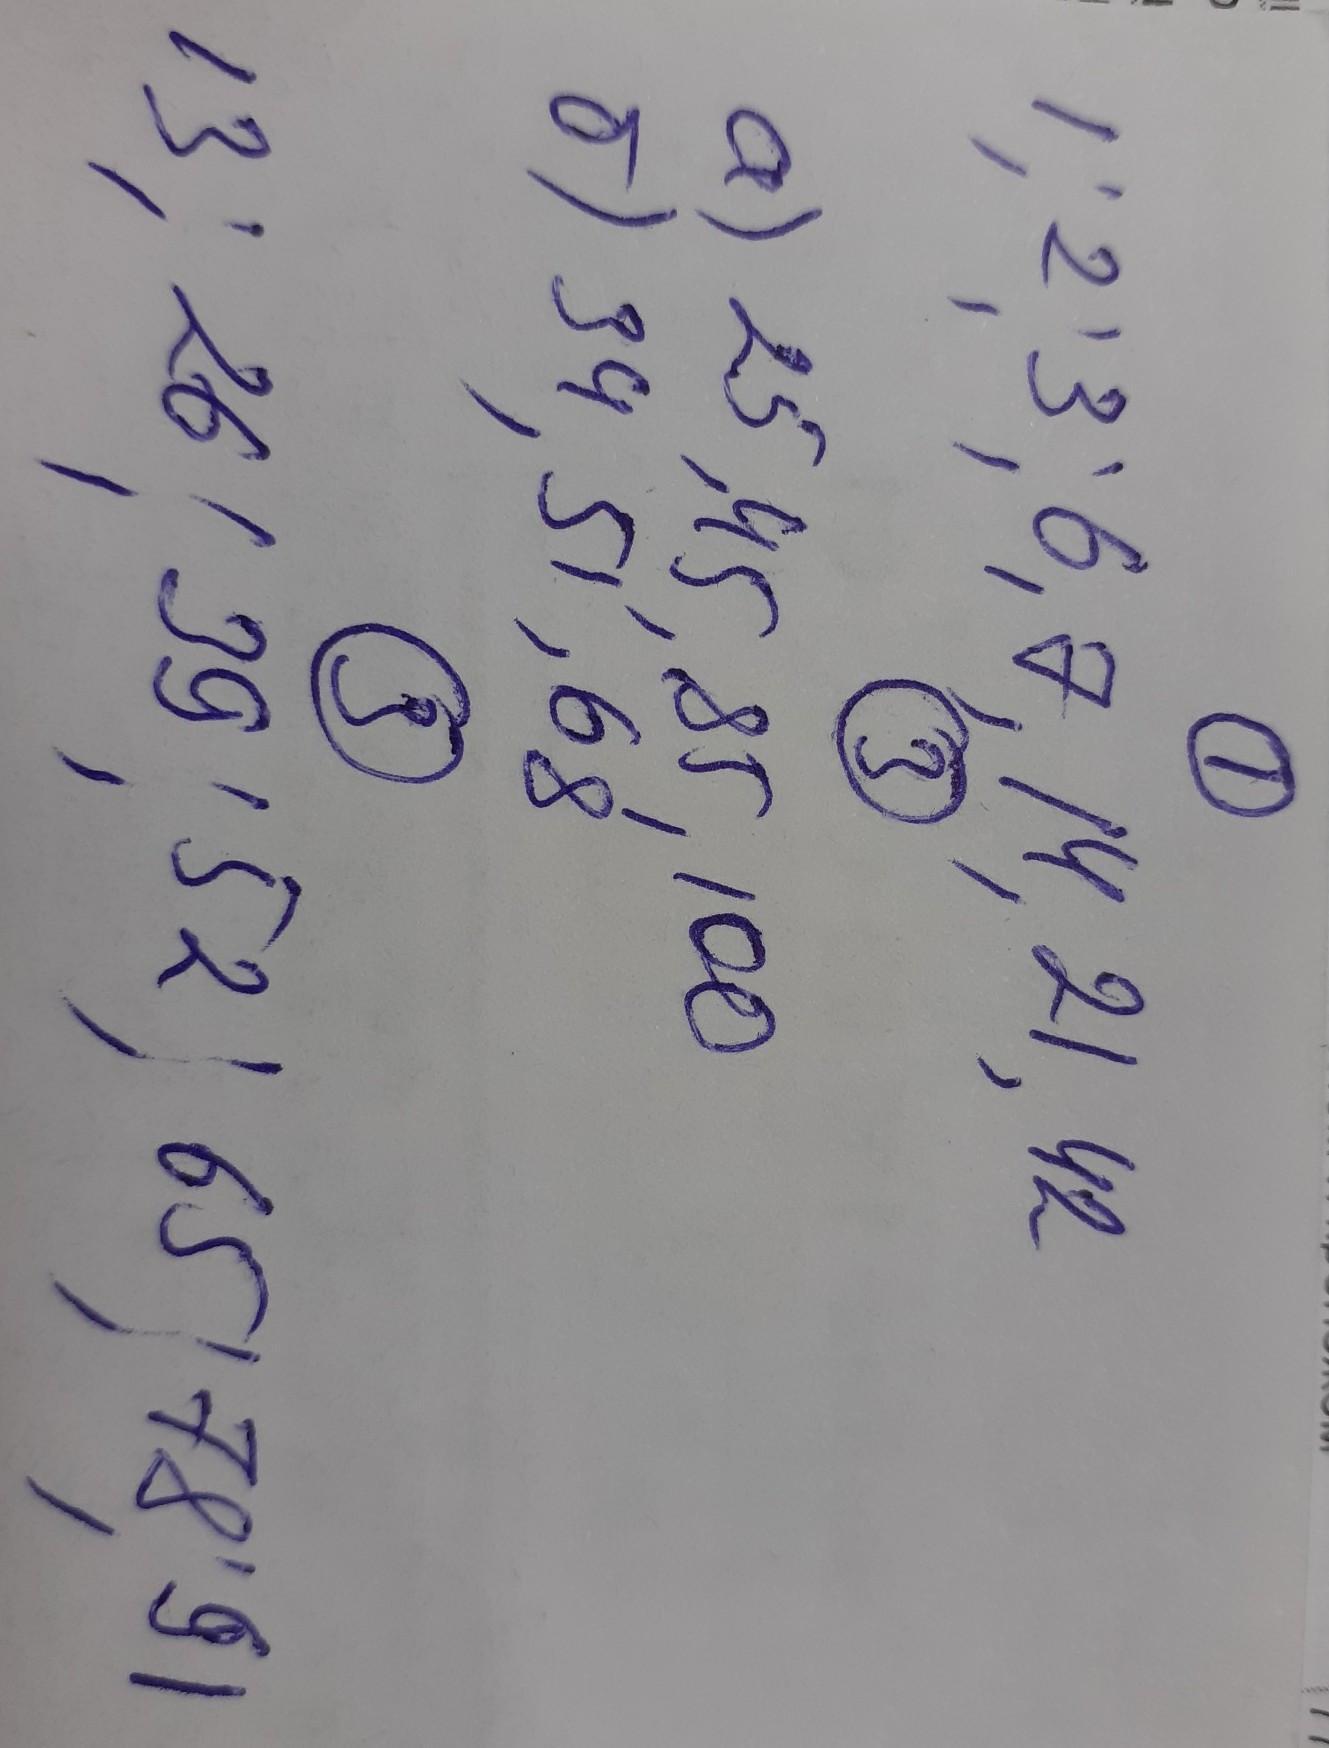 1
1; 2; 3; 6, 7, 14, 21, 42
а) 25, 45, 85, 100
б) 34, 51, 68
3
13; 26; 39; 52; 65; 78; 91